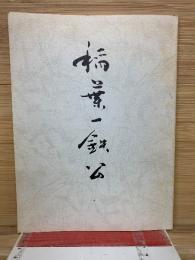 稲葉一鉄公